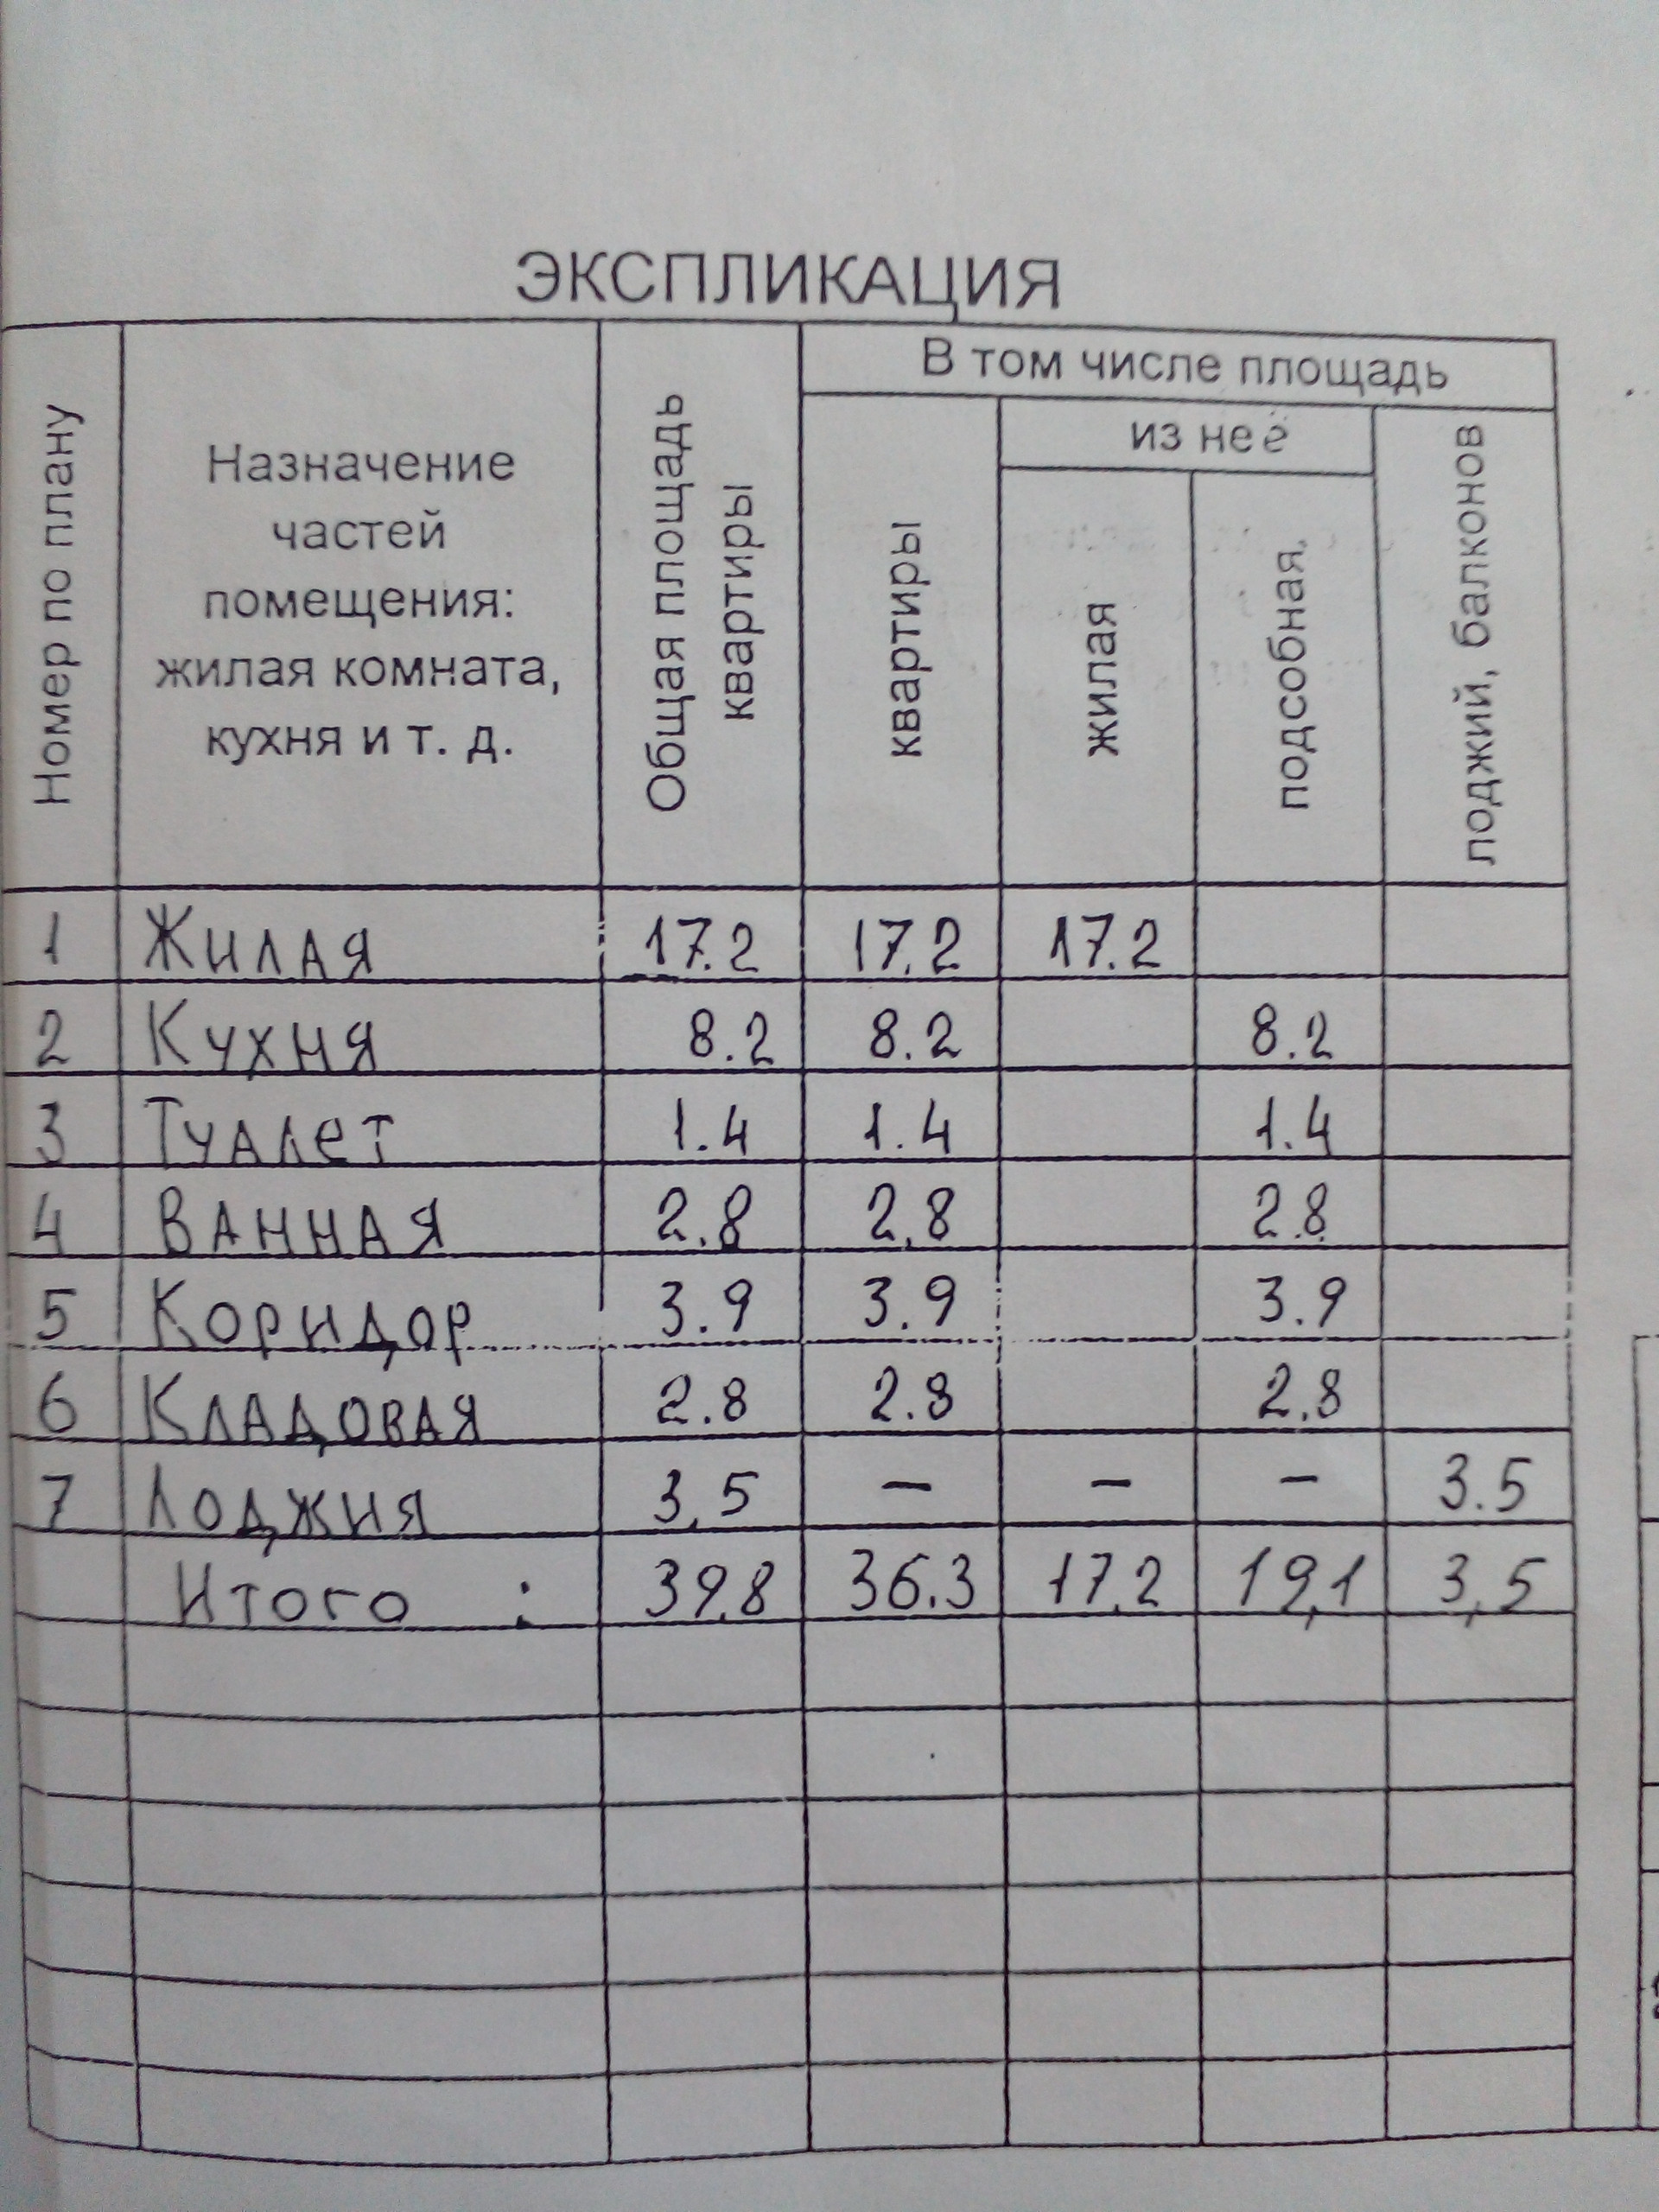 ЭКСПЛИКАЦИЯ
Номер по плану
Назначение
частей
помещения:
жилая комната,
кухня и т. д.
Общая площадь
квартиры
В том числе площадь
квартиры
из неё
жилая
подсобная
лоджий, балконов
1 Жилая 17.2 17.2 17.2
2 Кухня 8.2 8.2 8.2
3 Туалет 1.4 1.4 1.4
4 Ванная 2.8 2.8 2.8
5 Коридор 3.9 3.9 3.9
6 Кладовая 2.8 2.8 2.8
7 Лоджия 3,5 – – – 3.5
Итого : 39.8 36.3 17.2 19,1 3,5